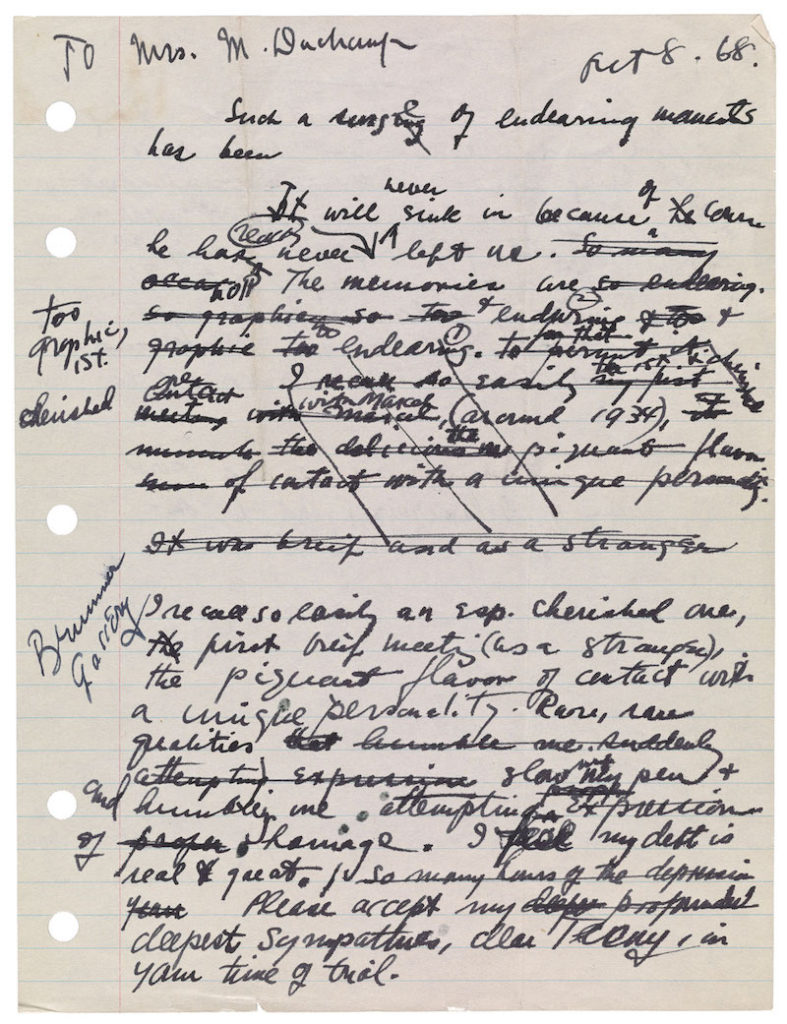 TO Mrs. M. Duchamp
Oct 8. 68.
Such a surge of endearing moments
has been
never of
It will sink in because he
he has really never left us. So many
The memories are so endearing.
so graphic, so too enduring & too &
graphic too endearing. to permit
too
graphic,
1st.
cherished
contact I recall so easily my first
meeting with Marcel, (around 1934),
the piquant flavor
of contact with a unique personality.
It was breif and as a stranger
Brummer
Gallery
I recall so easily an esp. cherished one,
the first breif meeting (as a stranger),
the piquant flavor of contact with
a unique personality. Rare, rare
qualities that humble me suddenly
attempting expression slow my pen &
and humbling me attempting expression
of proper homage. I feel my debt is
real & great. so many hours of the depression
years Please accept my deep profoundest
deepest sympathies, dear Teeny, in
your time of trial.